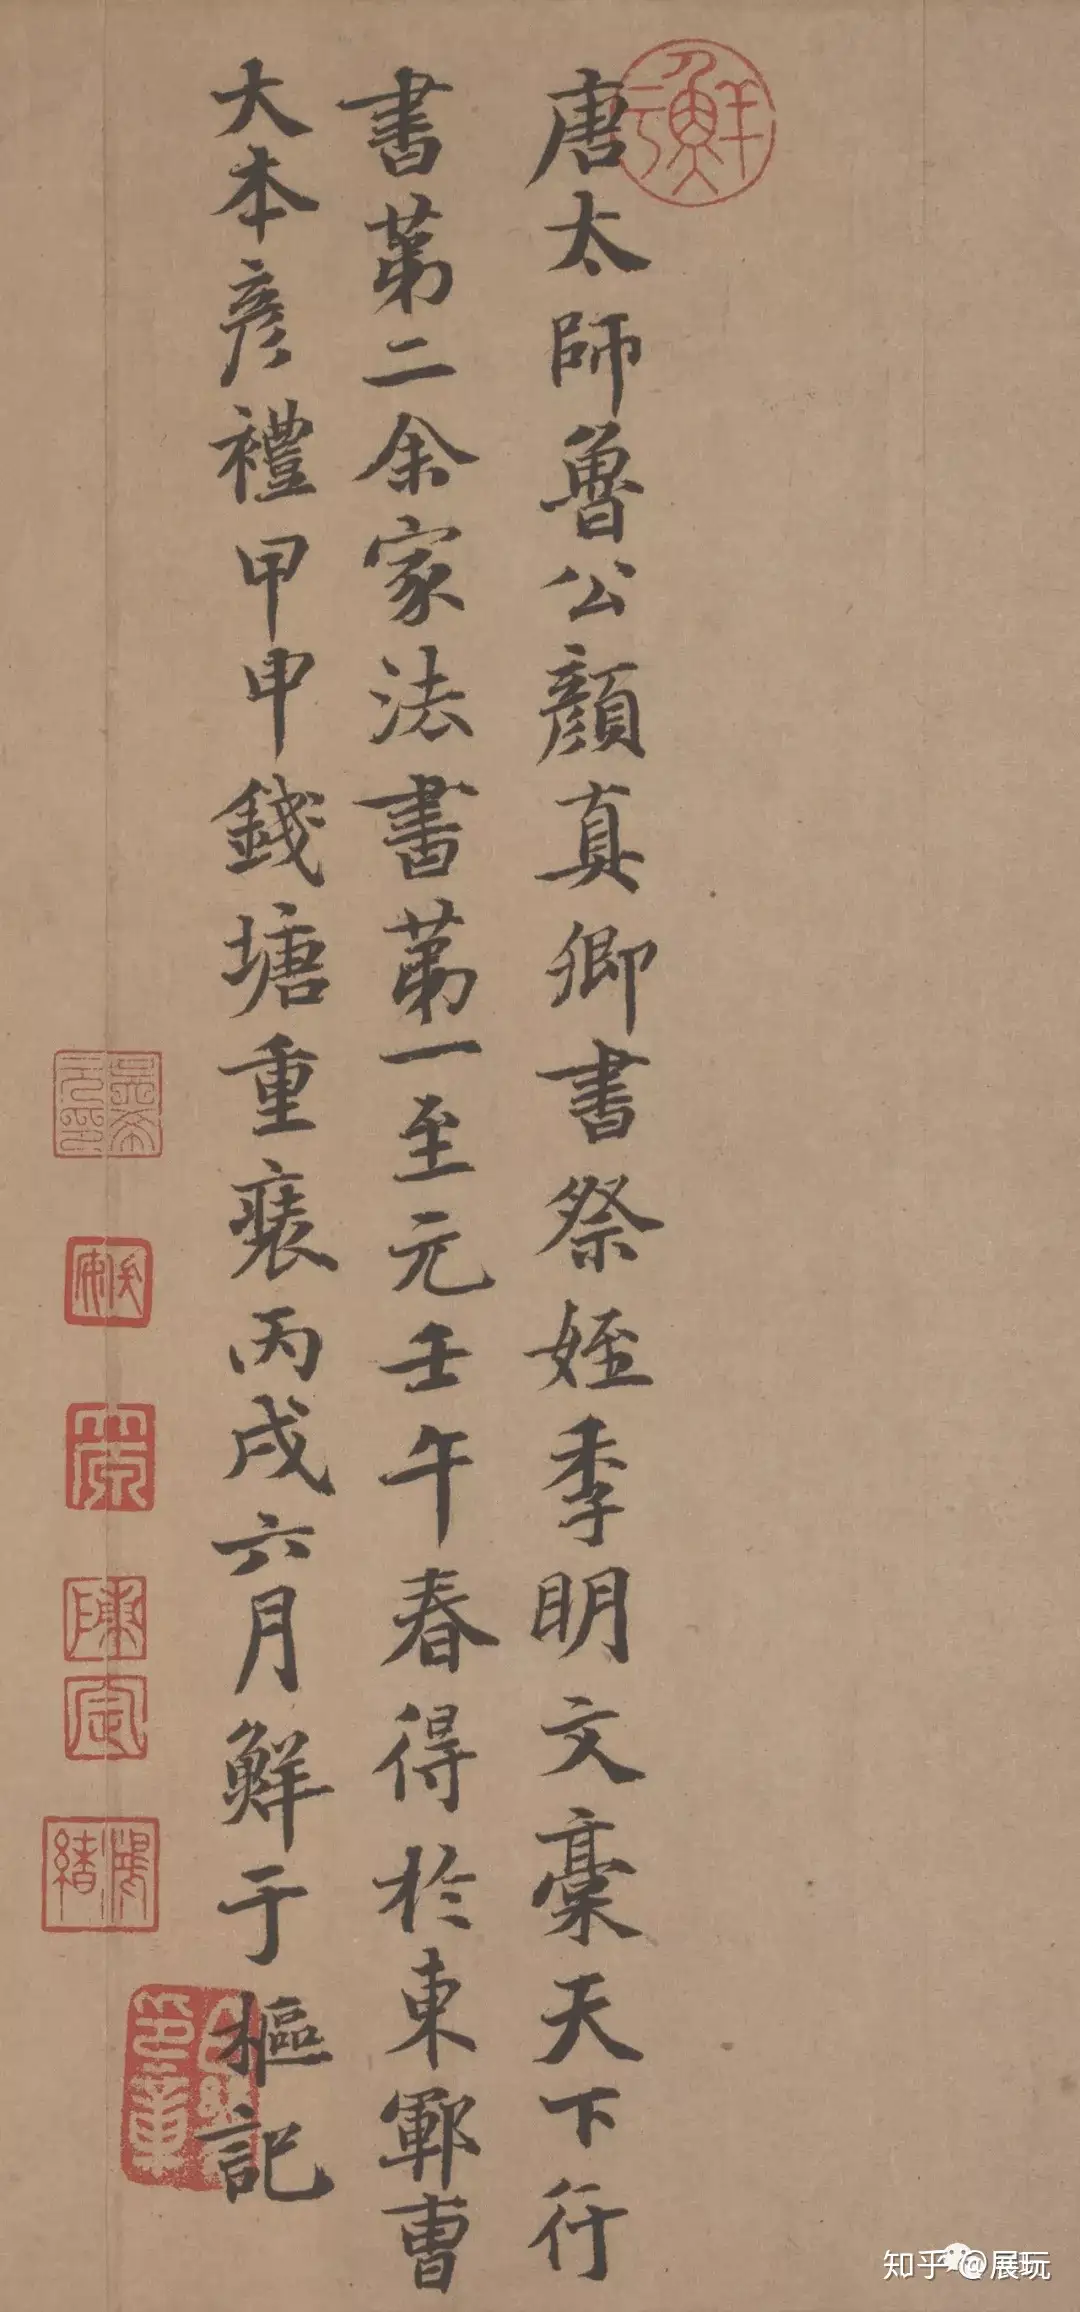 唐太師魯公顏真卿書祭姪季明文稾天下行
書第二余家法書第一至元壬午春得於東鄆曹
大本彥禮甲申錢塘重裝丙戌六月鮮于樞記
知乎 @展玩